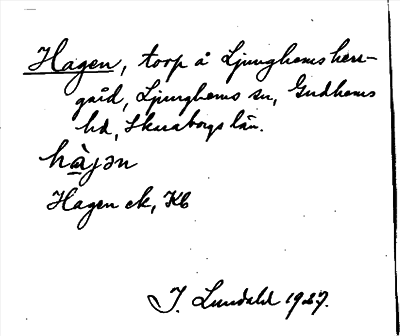 Hagen, torp å Ljunghems herr-
gård, Ljunghems sn, Gudhems
hd, Skaraborgs län.
hàjən
Hagen ek, Kb
J. Lundahl 1927.